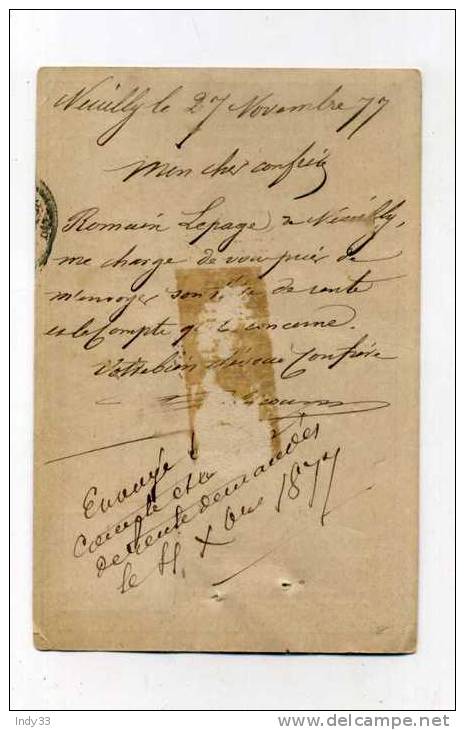 Neuilly le 27 Novembre 77
Mon cher confrère
Romain Lepage, de Neuilly,
me charge de vous prier de
m'envoyer son de rente
et le Compte qui le concerne.
Votre bien dévoué Confrère
Envoyé
compte et
de rente demandés
le Xbre 1877
Indy33
http://www.delcampe.net